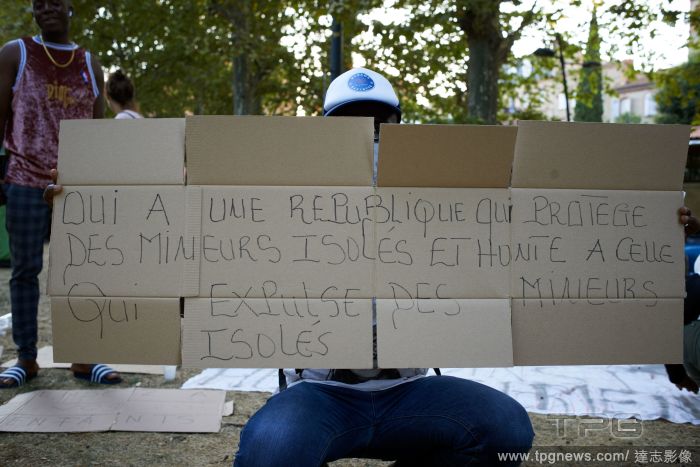 OUI A UNE REPUBLIQUE QUI PROTÈGE
DES MINEURS ISOLÉS ET HONTE A CELLE
QUi EXPULSE DES MINEURS
ISOLÉS
TPG
www.tpgnews.com/ 達志影像